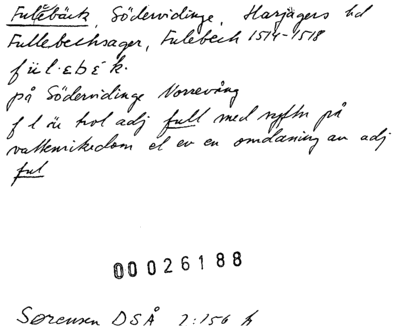 Fulebäck, Södervidinge, Harjagers hd
Fullebechsager, Fulebeck 1514-1518
fül·ɛbɛ́k·
på Södervidinge Norrevång
f l är trol adj full med syftn på
vattenrikedom el ev en omdaning av adj
ful
00026188
Sørensen DSÅ 1:156 f